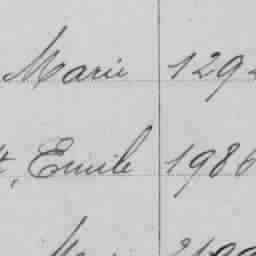 Marie 129
t, Emile 1986